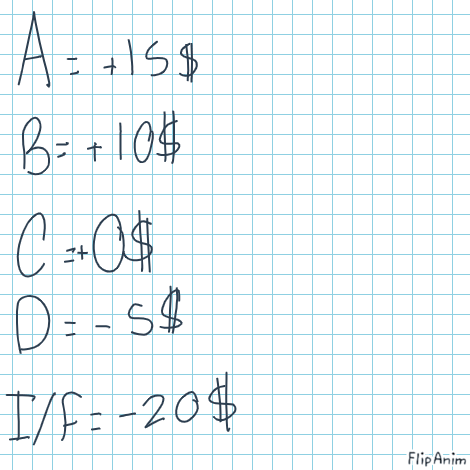 A = +15$
B = +10$
C = +0$
D = - 5$
I/f = -20$
FlipAnim